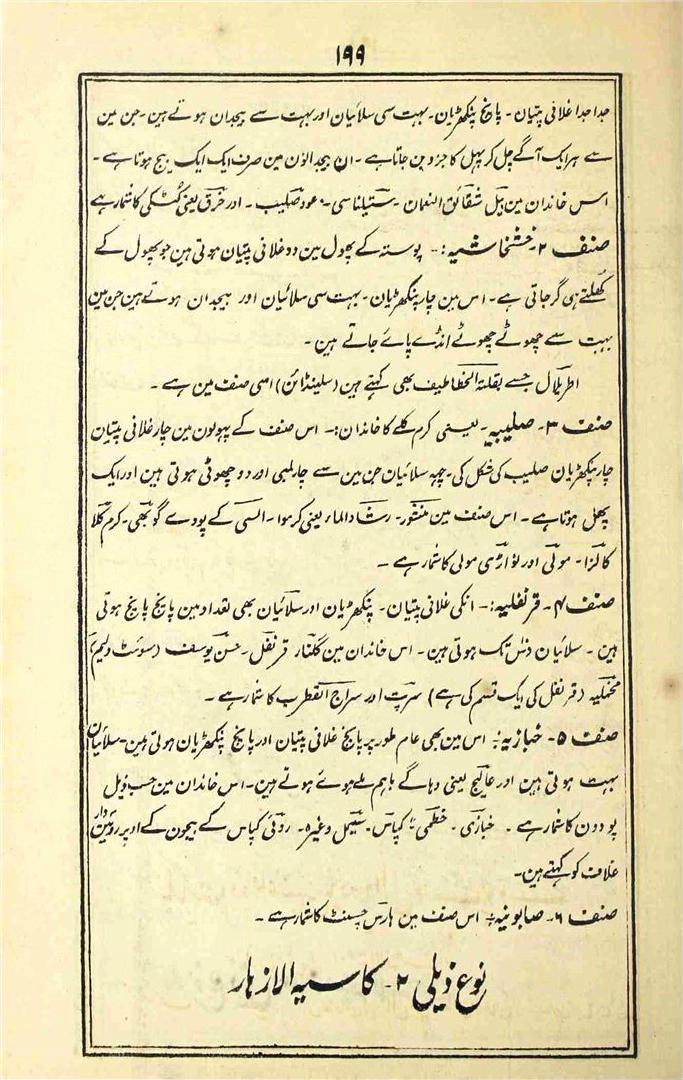 ۱۹۹
جدا جدا غلافی پتیان - پانچ پنکھڑیان - بہت سی سلائیان اور بہت سے بیجدان ہوتے ہین - جن مین
سے ہر ایک آگے چل کر پہل کا جزو بن جاتا ہے - ان بیجدانون مین صرف ایک ایک بیج ہوتا ہے -
اس خاندان مین بیل شقائق النعمان - ستیاناسی - عود صلیب - اور خربق یعنی کُٹکی کا شمار ہے
صنف ۲ - خشخاشیہ :- پوستہ کے پھول مین دو غلافی پتیان ہوتی ہین جو پھول کے
کھلتے ہی گر جاتی ہے - اس مین چار پنکھڑیان - بہت سی سلائیان اور بیجدان ہوتے ہین جن مین
بہت سے چھوٹے چھوٹے انڈے پائے جاتے ہین -
اطریلال جسے بقلۃ الخطاطیف بھی کہتے ہین (سلینڈائن) اسی صنف مین ہے -
صنف ۳ - صلیبیہ - یعنی کرم کلے کا خاندان :- اس صنف کے پہولون مین چار غلافی پتیان
چار پنکھڑیان صلیب کی شکل کی - چھہ سلائیان جن مین سے چار لمبی اور دو چھوٹی ہوتی ہین اور ایک
پھل ہوتا ہے - اس صنف مین منثور - رشاد الماء یعنی کرہوا - السی کے پودے گوبھی - کرم کلا
کاکڑا - مولی اور نواڑی مولی کا شمار ہے -
صنف ۴ - قرنفلیہ :- انکی غلافی پتیان - پنکھڑیان اور سلائیان بھی تعداد مین پانچ پانچ ہوتی
ہین - سلائیان دس تک ہوتی ہین - اس خاندان مین گلنار قرنفل - حسن یوسف (سوئٹ ولیم)
مخملیہ (قرنفل کی ایک قسم کی ہے) سرپت اور سراج القطرب کا شمار ہے -
صنف ۵ - خبازیہ :- اس مین بھی عام طور پر پانچ غلافی پتیان اور پانچ پنکھڑیان ہوتی ہین - سلائیان
بہت ہوتی ہین اور عالیج یعنی دہاگے باہم ملے ہوئے ہوتے ہین - اس خاندان مین حسب ذیل
پودون کا شمار ہے - خبازی - خطمی - کپاس - سیمل وغیرہ - روئی کپاس کے بیجون کے اوپر روئین دار
غلاف کو کہتے ہین -
صنف ۶ - صابونیہ :- اس صنف مین ہارس چسنٹ کا شمار ہے -
نوع ذیلی ۲ - کاسیۃ الازہار